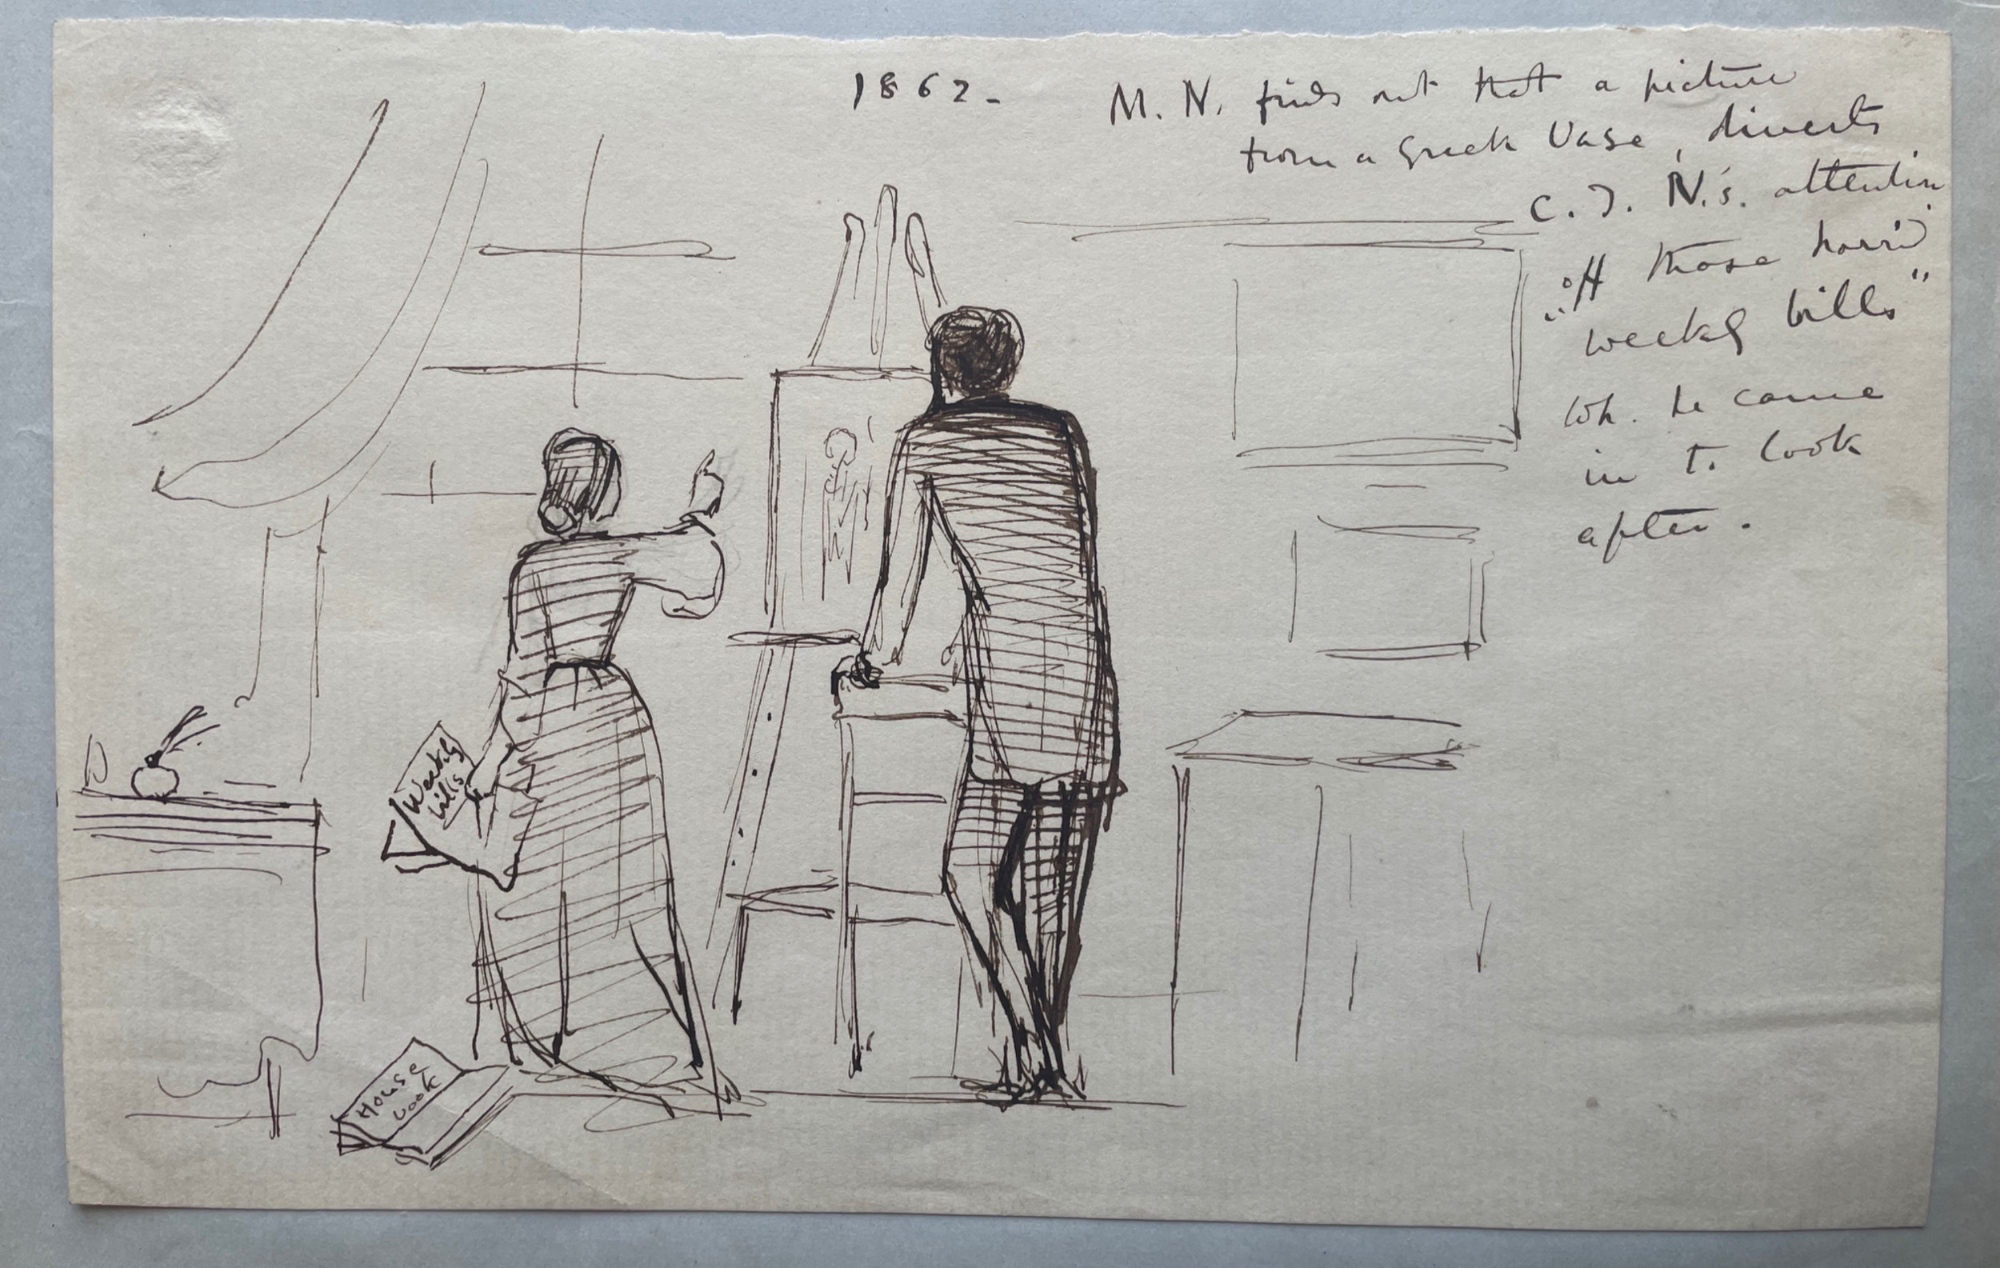 1862-
M. N. finds out that a picture
from a Greek Vase, diverts
C. T. N.'s. attention
"off those horrid
weekly bills"
wh. he came
in to look
after.
Weekly
bills
House
book